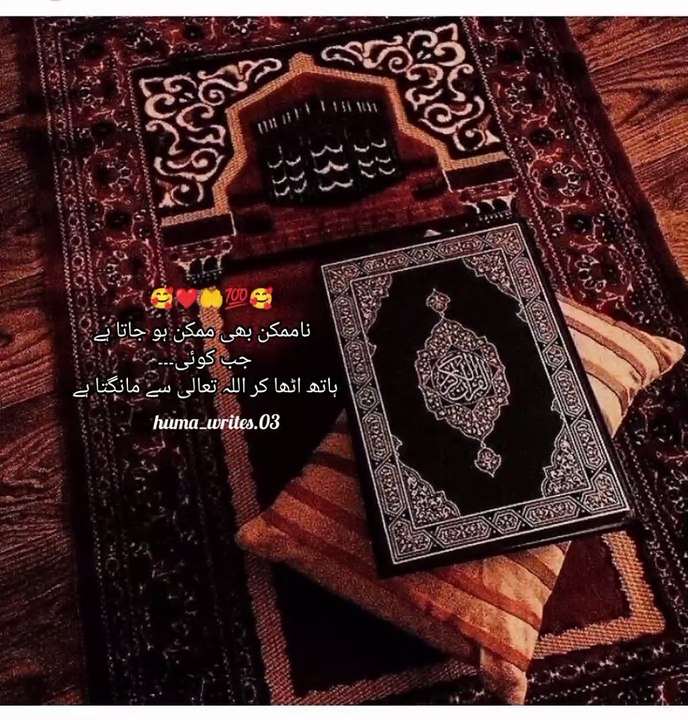 🥰❤️🤲💯🥰
ناممکن بھی ممکن ہو جاتا ہے
جب کوئی۔۔۔
ہاتھ اٹھا کر اللہ تعالی سے مانگتا ہے
huma_writes.03
القرآن الكريم